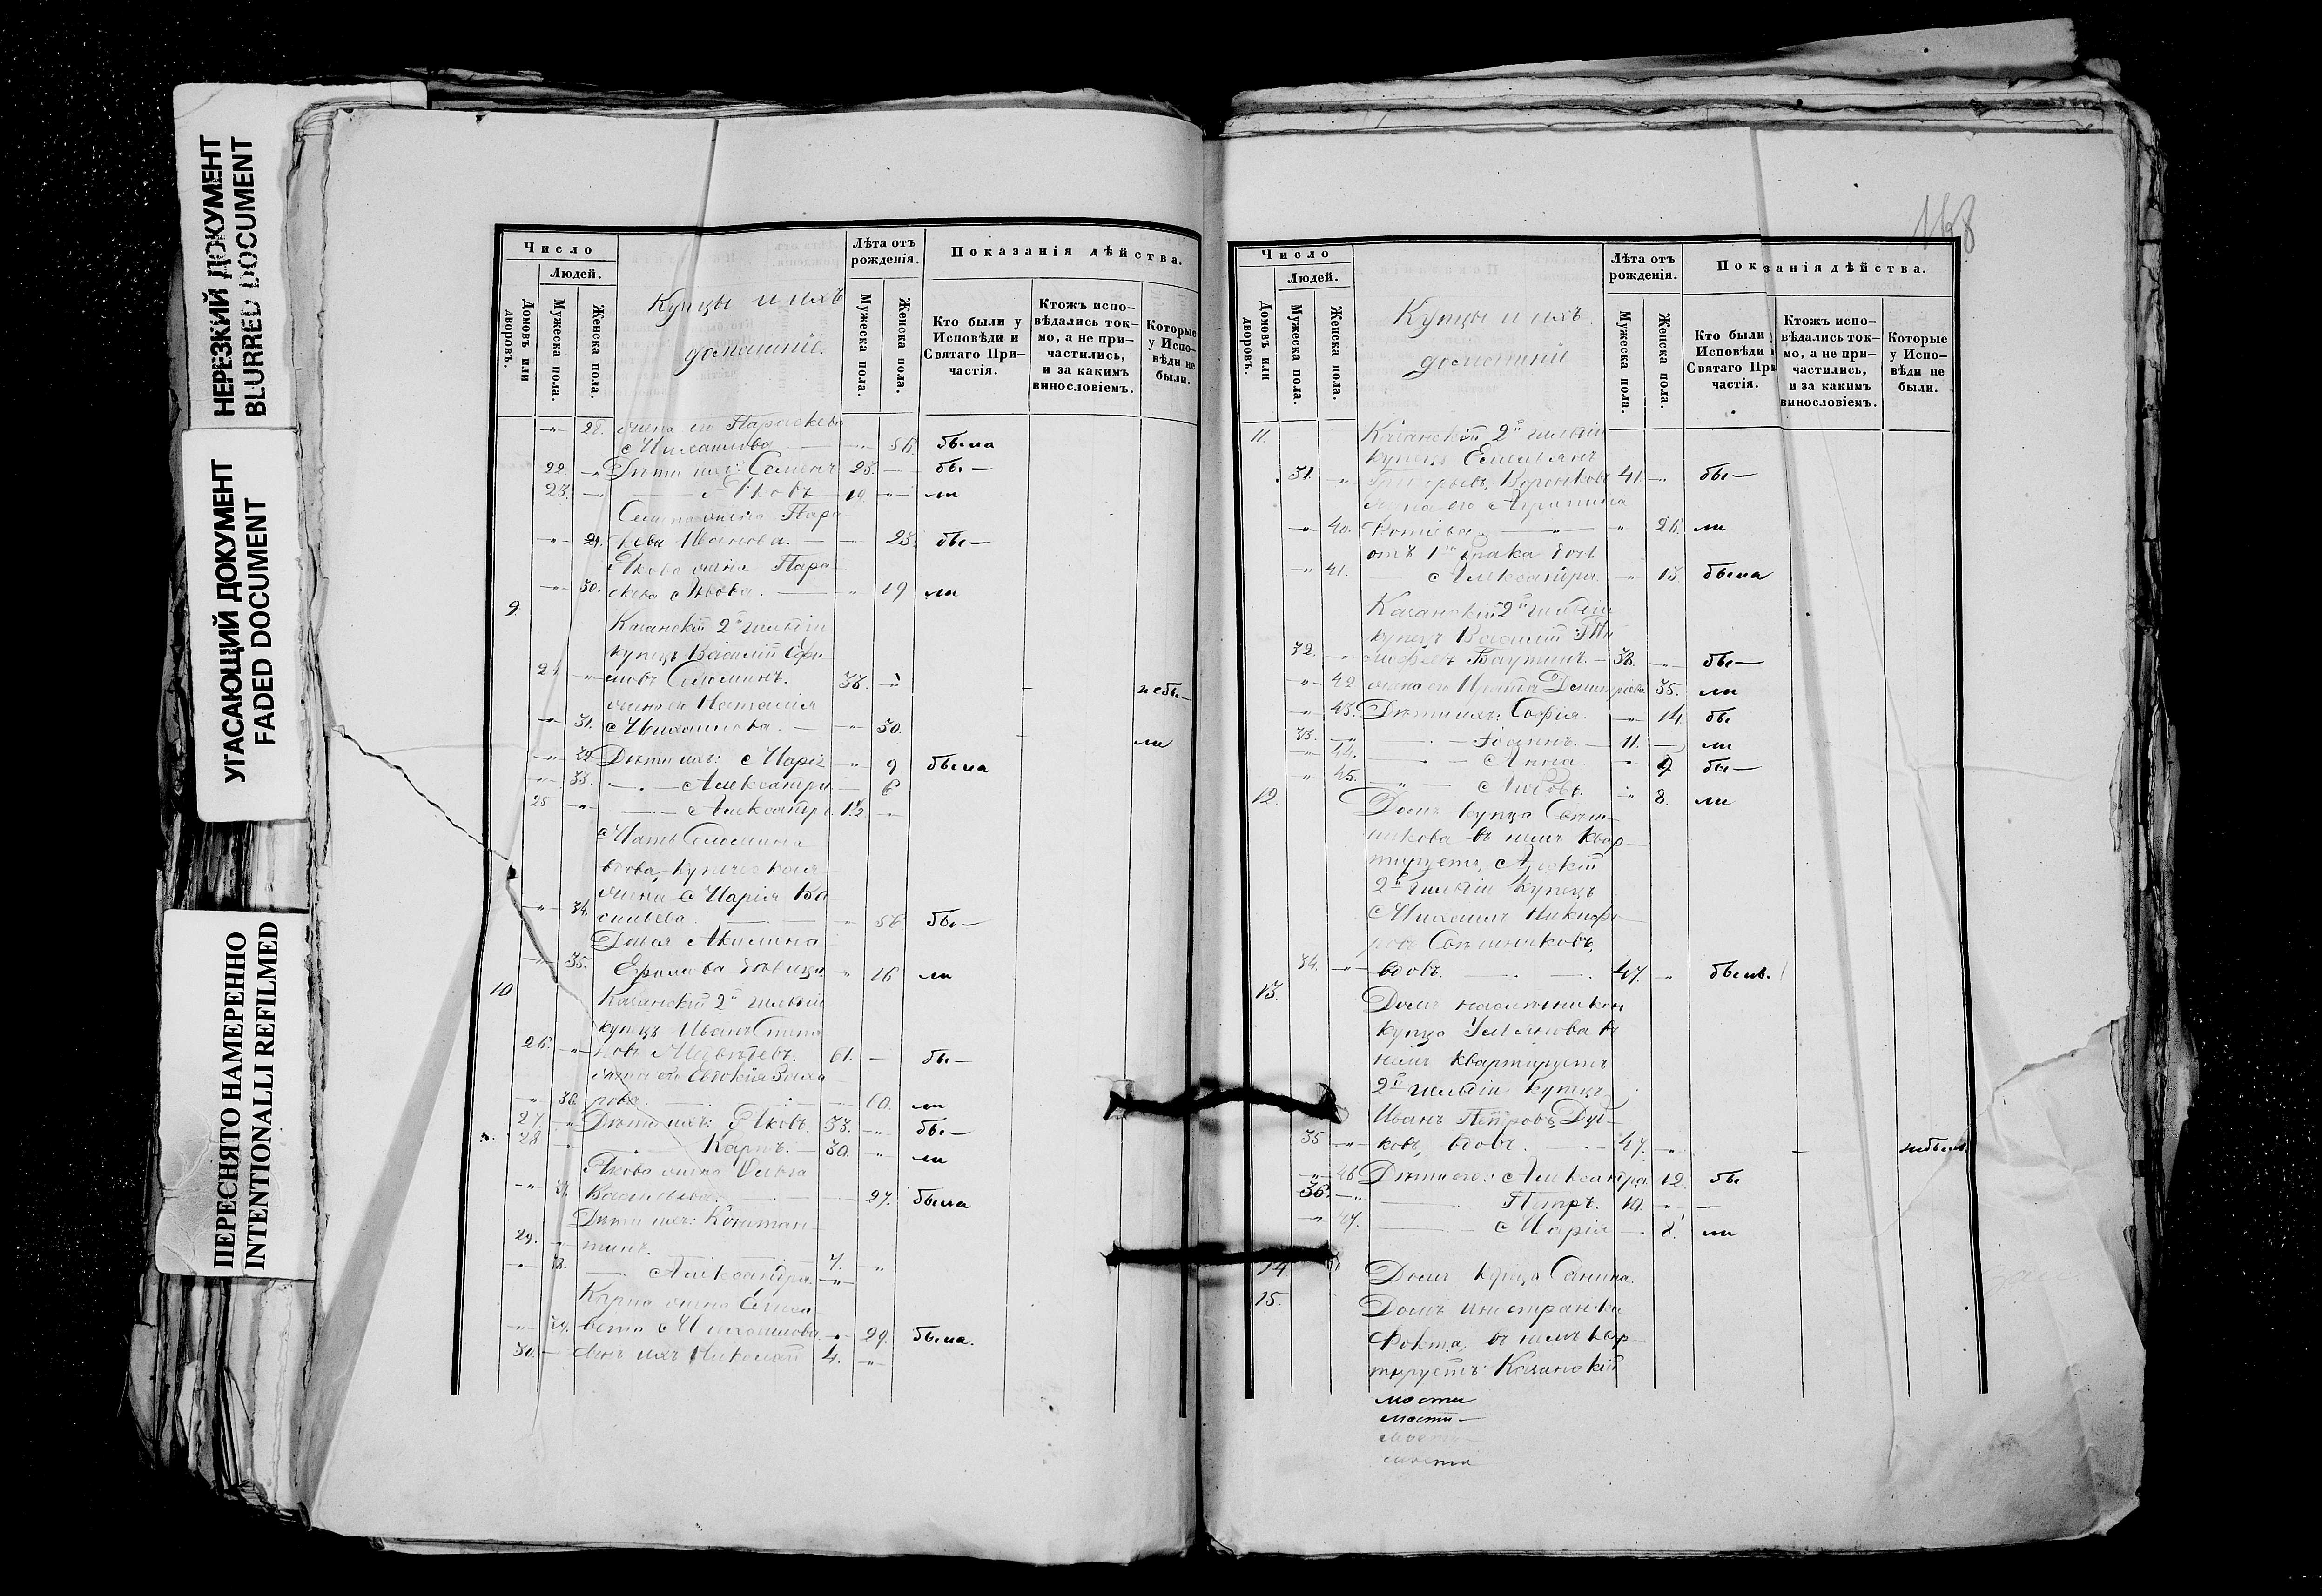 НЕРЕЗКИЙ ДОКУМЕНТ
BLURRED DOCUMENT
УГАСАЮЩИЙ ДОКУМЕНТ
FADED DOCUMENT
ПЕРЕСНЯТО НАМЕРЕННО
INTENTIONALLI REFILMED
Число
Людей.
Домовъ или дворовъ.
Мужеска пола.
Женска пола.
Купцы и ихъ
домашніе.
Лѣта отъ рожденія.
Мужеска пола.
Женска пола.
Показанія дѣйства.
Кто были у Исповѣди и Святаго Причастія.
Ктожъ исповѣдались токмо, а не причастились, и за какимъ винословіемъ.
Которые у Исповѣди не были.
28. жена его Параскева
Михаилова 56. была
22. Дѣти ихъ: Семенъ 25. бы—
23. Яковъ 19 ли
Семена жена Пара-
29. скева Иванова. 23. бы—
Якова жена Пара-
30. скева Львова. 19 ли
9. Казанскій 2й гильдіи
купецъ Василій Ефи-
24. мовъ Соломинъ. 38. небы—
жена его Наталія
31. Михаилова. 30. ли
32. Дѣти ихъ: Марія 9. была
33. Александра. 6
25 Александръ 1½
Мать Соломина
вдова, купеческая
жена Марія Ва-
34. сильева. 56 бы—
Домаш Акилина
35. Ефимова дѣвица 16 ли
10 Казанскій 2й гильдіи
купецъ Иванъ Степа-
26. новъ Медвѣдевъ. 61. бы—
жена его Евдокія Заха-
36. рова. 60. ли
27. Дѣти ихъ: Яковъ. 33. бы—
28 Карпъ. 30. ли
Якова жена Ольга
37. Васильева. 27. была
Дѣти ихъ: Констан-
29. тинъ. 7.
38. Александра.
Карпа жена Елиза-
39. вета Михаилова. 29. была.
30. сынъ ихъ Николай 4.
Число
Людей.
Домовъ или дворовъ.
Мужеска пола.
Женска пола.
Купцы и ихъ
домашніе
Лѣта отъ рожденія.
Мужеска пола.
Женска пола.
Показанія дѣйства.
Кто были у Исповѣди и Святаго При частія.
Ктожъ исповѣдались токмо, а не причастились, и за какимъ винословіемъ.
Которые у Исповѣди не были.
11. Казанскій 2й гильдіи
купецъ Емельянъ
31. Григорьевъ Воронковъ 41. бы—
жена его Агрипина
40. Фотіева. 26. ли
отъ 1го брака дочь
41. Александра. 13. была
Казанскій 2й гильдіи
купецъ Василій Ти-
32. мофѣевъ Баутинъ. 38. бы—
42 жена его Ираида Дмитріева. 35. ли
43. Дѣти ихъ: Софія. 14. бы
33. Іоаннъ. 11. ли
44. Анна. 9 бы—
45. Любовь. 8. ли
12. Домъ купца Свѣш-
никова въ немъ квар-
тируетъ, Арскій
2й гильдіи купецъ
Михаилъ Никифо-
ровъ Свѣшниковъ,
34. вдовъ. 47. бывъ.
13. Домъ наслѣдниковъ
купца Умѣнова въ
немъ квартируетъ
2й гильдіи купецъ
Иванъ Петровъ Дуд-
35 ковъ, вдовъ. 47. небывъ.
46 Дѣти его: Александра 12. бы
36. Петръ. 10.
47. Марія 8. ли
14 Домъ купца Санина.
15. Домъ иностранки
Фокта, въ немъ квар-
тируетъ Казанскій
мости
мости—
мости
мости